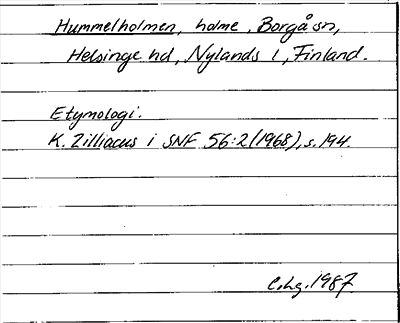 Hummelholmen, holme, Borgå sn,
Helsinge hd, Nylands l, Finland.
Etymologi.
K. Zilliacus i SNF 56:2 (1968), s. 194.
1987